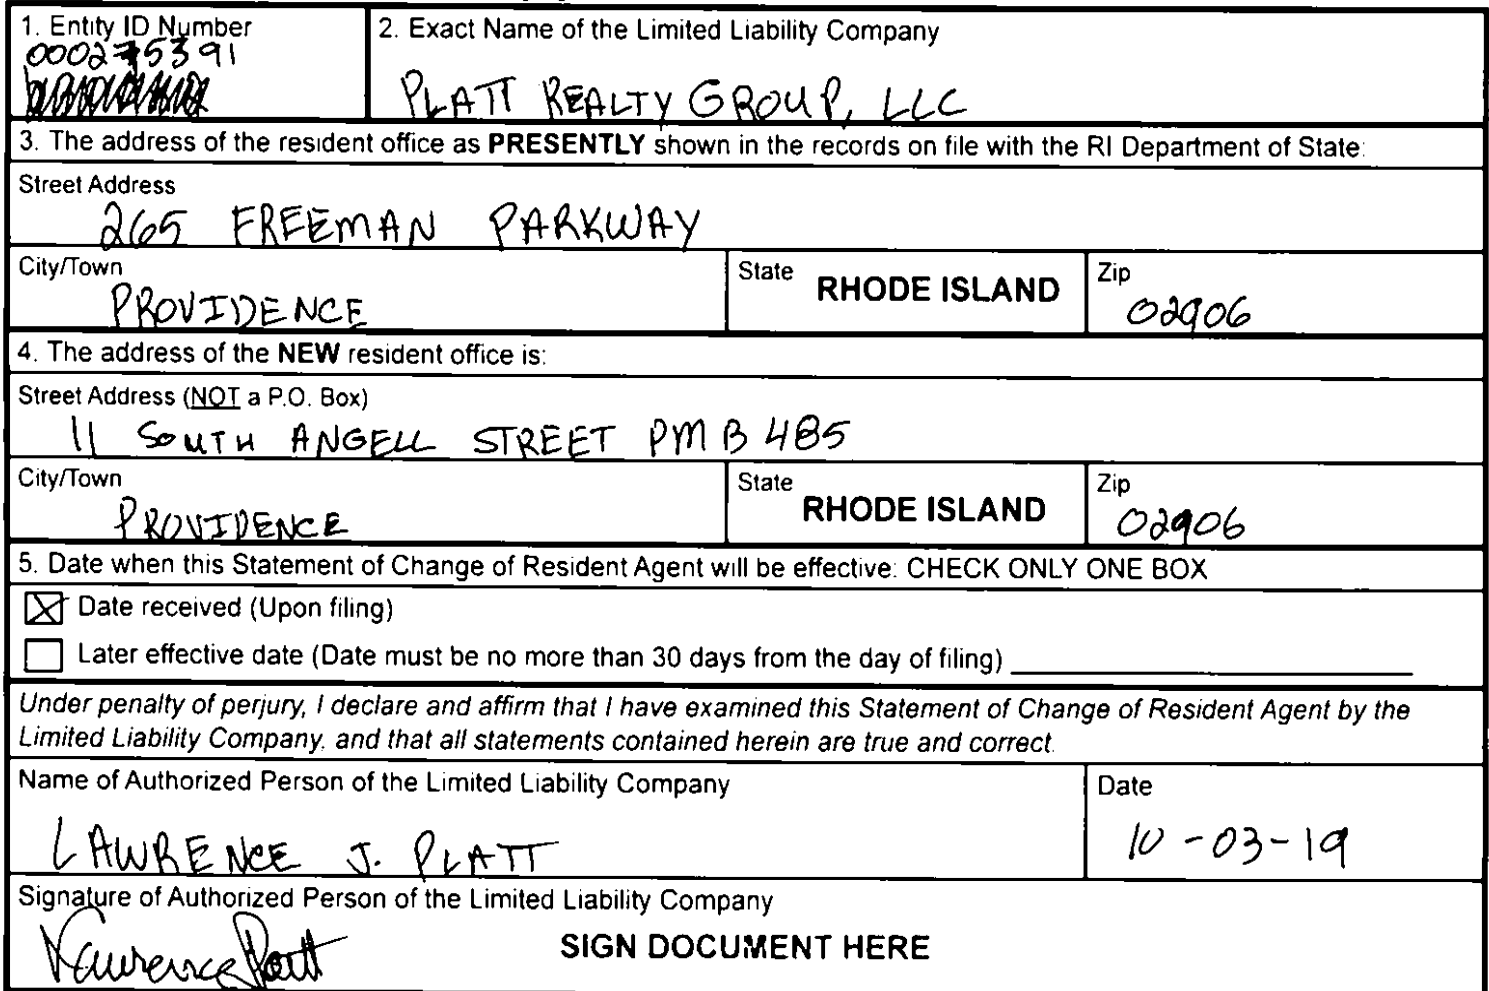 1. Entity ID Number
000275391
2. Exact Name of the Limited Liability Company
PLATT REALTY GROUP, LLC
3. The address of the resident office as PRESENTLY shown in the records on file with the RI Department of State:
Street Address
265 FREEMAN PARKWAY
City/Town
PROVIDENCE
State RHODE ISLAND
Zip
02906
4. The address of the NEW resident office is:
Street Address (NOT a P.O. Box)
11 SOUTH ANGELL STREET PMB 485
City/Town
PROVIDENCE
State RHODE ISLAND
Zip
02906
5. Date when this Statement of Change of Resident Agent will be effective: CHECK ONLY ONE BOX
Date received (Upon filing)
Later effective date (Date must be no more than 30 days from the day of filing)
Under penalty of perjury, I declare and affirm that I have examined this Statement of Change of Resident Agent by the
Limited Liability Company, and that all statements contained herein are true and correct.
Name of Authorized Person of the Limited Liability Company
LAWRENCE J. PLATT
Date
10-03-19
Signature of Authorized Person of the Limited Liability Company
Lawrence Platt
SIGN DOCUMENT HERE